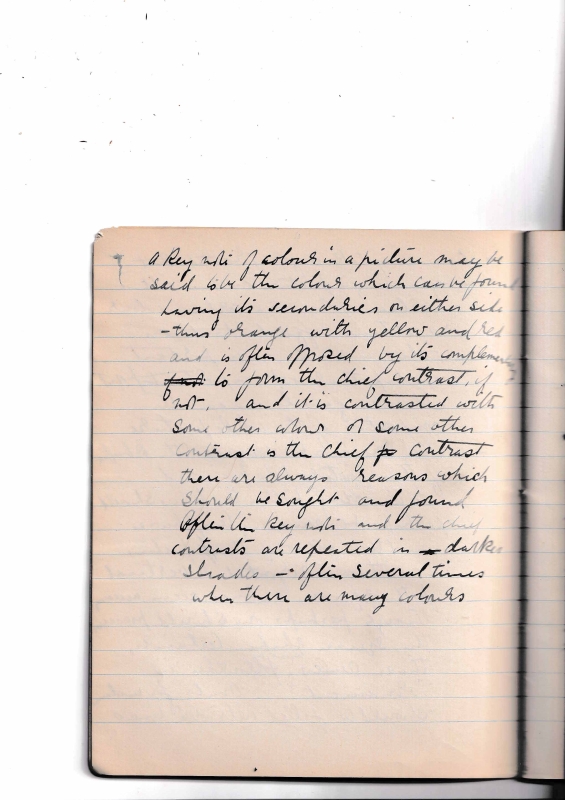 A key note of colour in a picture may be
said to be the colour which can be found
having its secondaries on either side
- thus orange with yellow and red
and is often opposed by its complementary
to form the chief contrast, if
not, and it is contrasted with
some other colour or some other
contrast is the chief contrast
there are always reasons which
should be sought and found
Often the key note and the chief
contrasts are repeated in darker
shades - often several times
when there are many colours